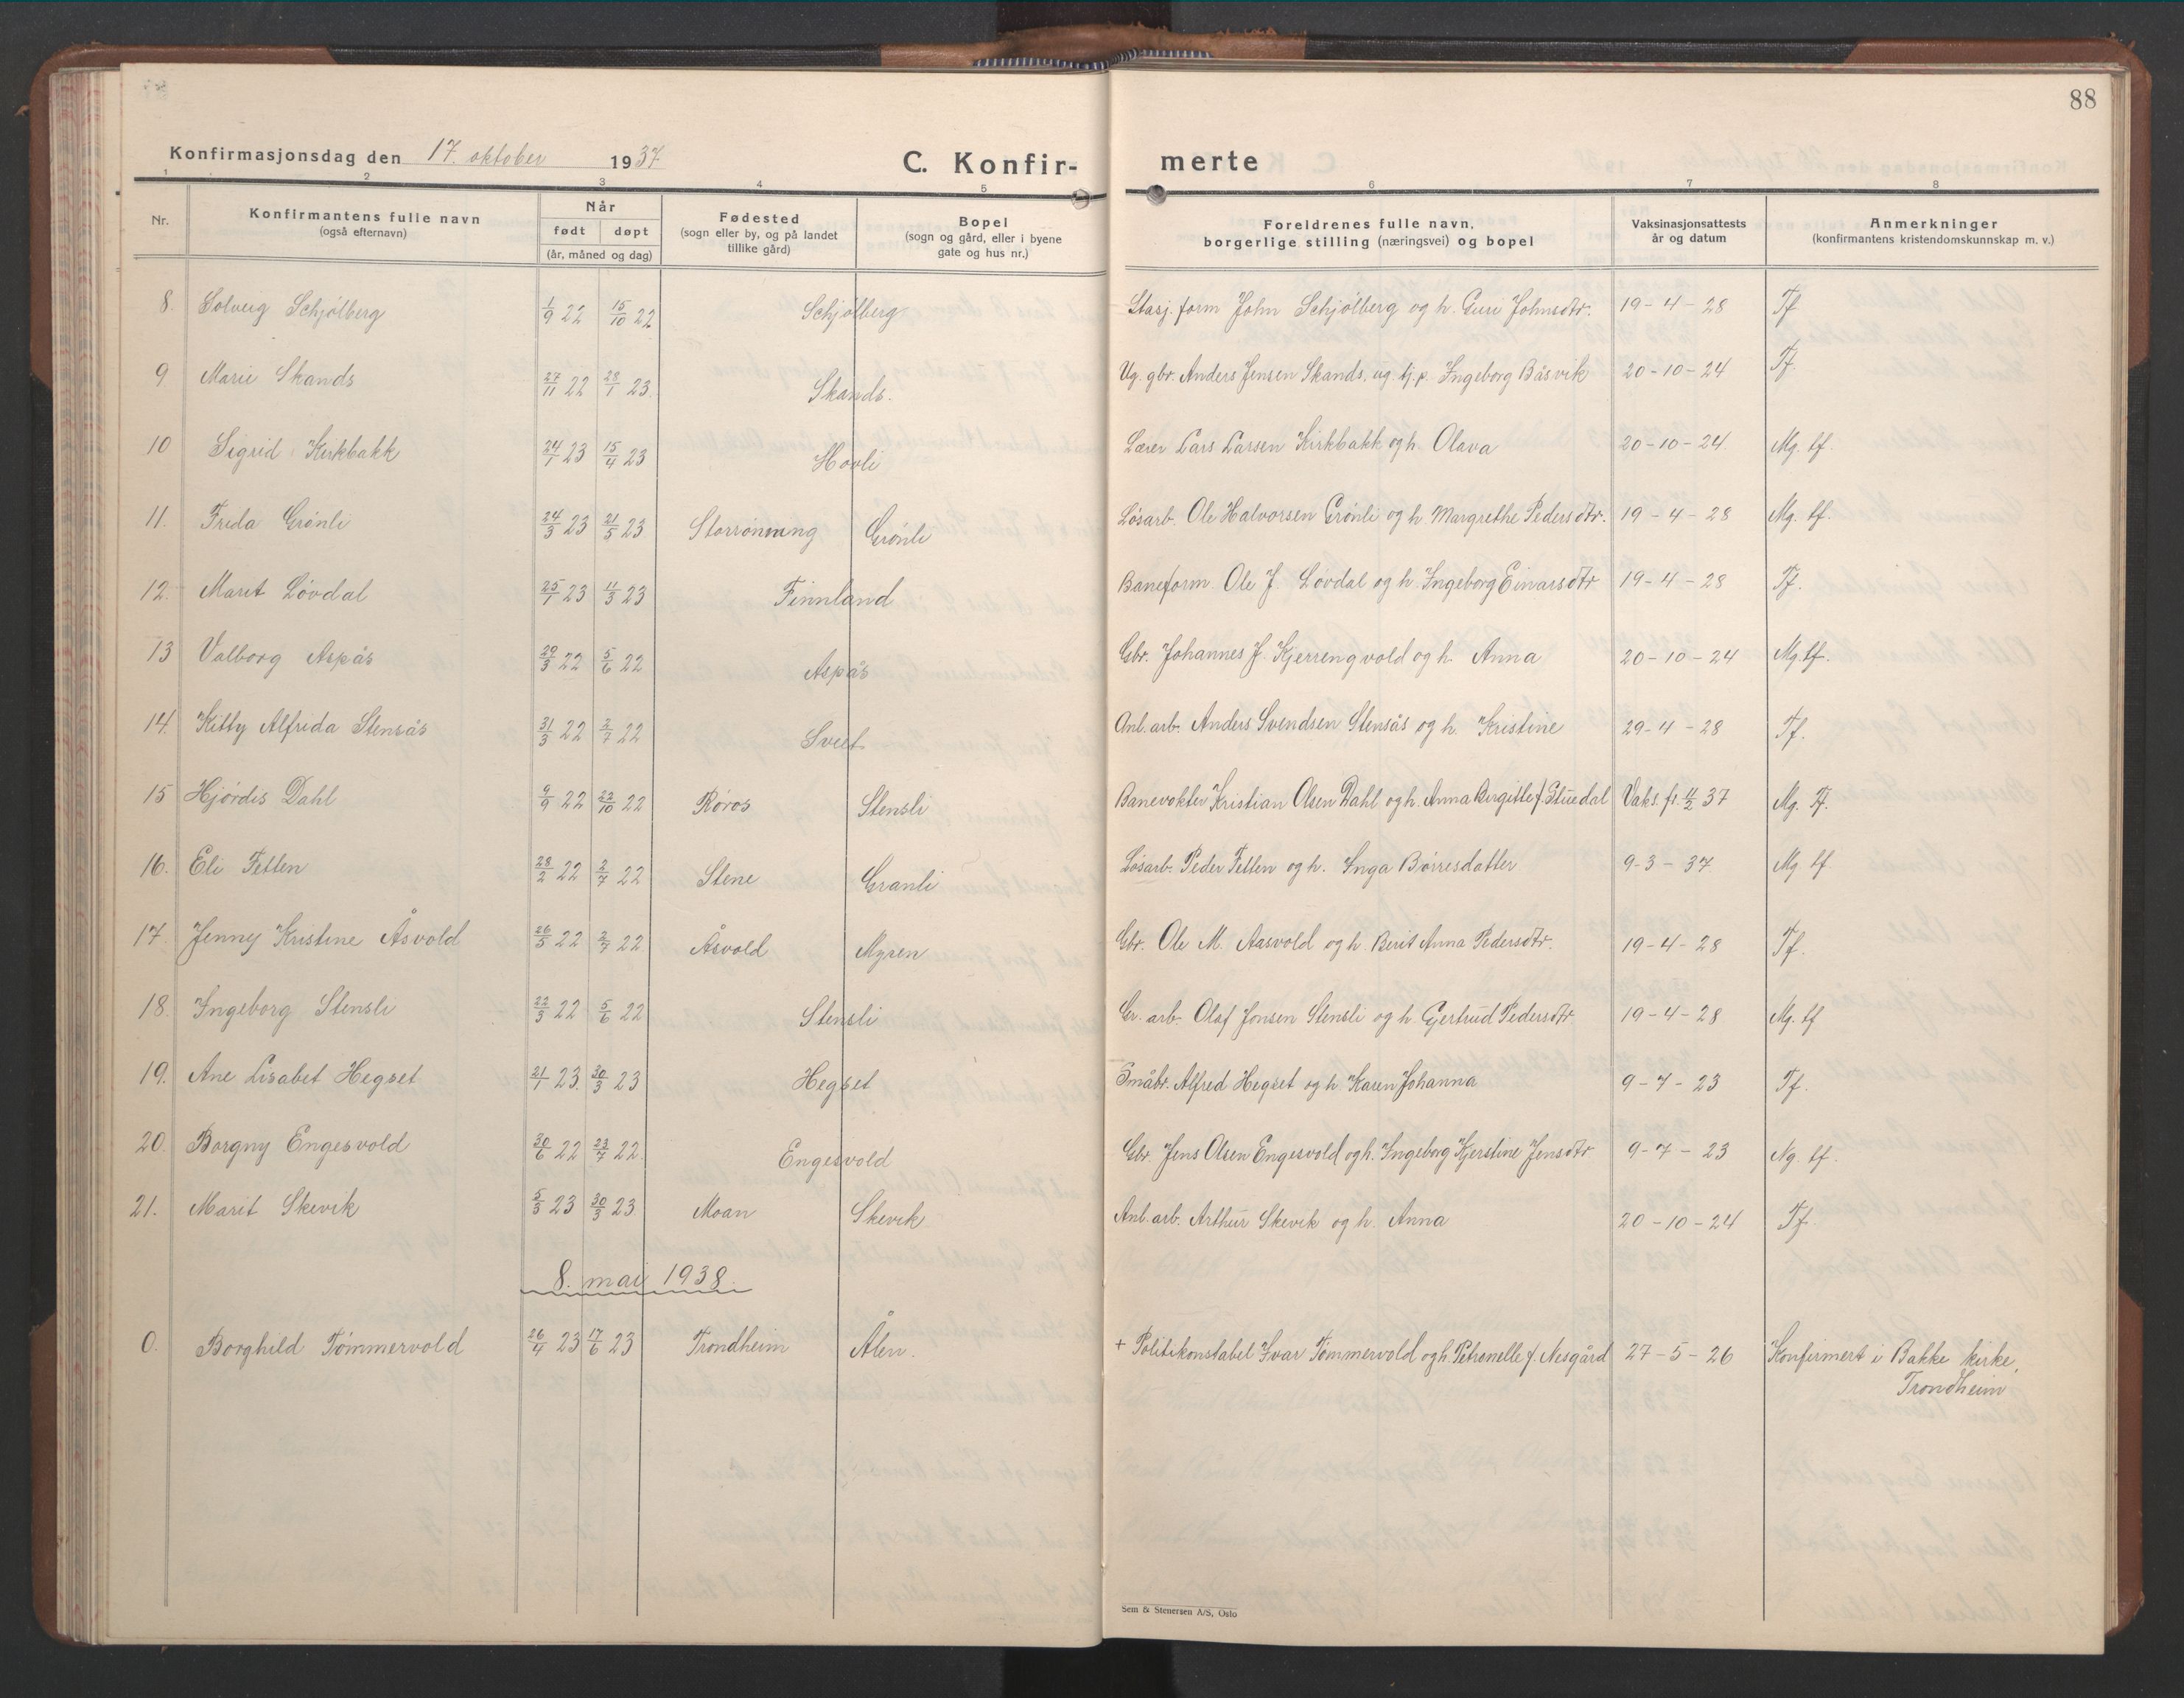 88
Konfirmasjonsdag den 17. oktober 1937 C. Konfir- merte
1 2 3 4 5 6 7 8
Nr. Konfirmantens fulle navn (også efternavn) Når født døpt (år, måned og dag) Fødested (sogn eller by, og på landet tillike gård) Bopel (sogn og gård, eller i byene gate og hus nr.) Foreldrenes fulle navn, borgerlige stilling (næringsvei) og bopel Vaksinasjonsattests år og datum Anmerkninger (konfirmantens kristendomskunnskap m. v.)
8. Solveig Schjølberg 1/9 22 15/10 22 Schjølberg Stasj. form John Schjølberg og h. Guri Johnsdtr. 19-4-28 Tf
9 Marie Skands 27/11 22 28/1 23 Skands. Ug. gbr. Anders Jensen Skands, ug. tj.p. Ingeborg Båsvik 20-10-24 Tf.
10 Sigrid Kirkbakk 24/1 23 15/4 23 Hovli Lærer Lars Larsen Kirkbakk og h. Olava 20-10-24. Mg. tf.
11. Frida Grønli 24/3 23 21/5 23 Storrønning Grønli Løsarb. Ole Halvorsen Grønli og h. Margrethe Pedersdtr. 19-4-28 Mg. tf.
12. Marit Løvdal 25/1 23 11/3 23 Finnland Baneform. Ole J. Løvdal og h. Ingeborg Einarsdtr 19-4-28 Tf.
13 Valborg Aspås 29/3 22 5/6 22 Aspås Gbr. Johannes J. Kjerrengvold og h. Anna 20-10-24 Mg. tf.
14. Kitty Alfrida Stensås 31/3 22 2/7 22 Sveet Anl. arb. Anders Svendsen Stensås og h. Kristine 29-4-28 Tf.
15 Hjørdis Dahl 9/9 22 22/10 22 Røros Stensli Banevokter Kristian Olsen Dahl og h. Anna Birgitte f. Stuedal Vaks. fr. 11/2 37 Mg. Tf.
16. Eli Fetten 28/2 22 2/7 22 Stene Granli Løsarb. Peder Fetten og h. Inga Børresdatter 9-3-37 Mg tf
17. Jenny Kristine Åsvold 26/5 22 2/7 22 Åsvold Myren Gbr. Ole M. Aasvold og h. Berit Anna Pedersdtr. 19-4-28 Tf.
18. Ingeborg Stensli 22/3 22 5/6 22 Stensli Gr. arb. Olaf Jonsen Stensli og h. Gjertrud Pedersdtr 19-4-28 Mg. tf
19. Ane Lisabet Hegset 21/1 23. 30/3 23 Hegset Småbr. Alfred Hegset og h. Karen Johanna 9-7-23 Tf.
20. Borgny Engesvold 30/6 22 23/7 22. Engesvold Gbr. Jens Olsen Engesvold og h. Ingeborg Kjerstine Jensdtr 9-7-23 Ng. tf.
21. Marit Skevik 5/3 23 30/3 23 Moan Skevik Anl. arb. Arthur Skevik og h. Anna 20-10-24 Tf.
8. mai 1938.
0. Borghild Tømmervold 26/4 23 17/6 23 Trondheim Ålen. + Politikonstabel Ivar Tømmervold og h. Petronelle f. Nesgård 27-5-26 Konfirmert i Bakke kirke,
Trondheim
Sem & Stenersen A/S, Oslo